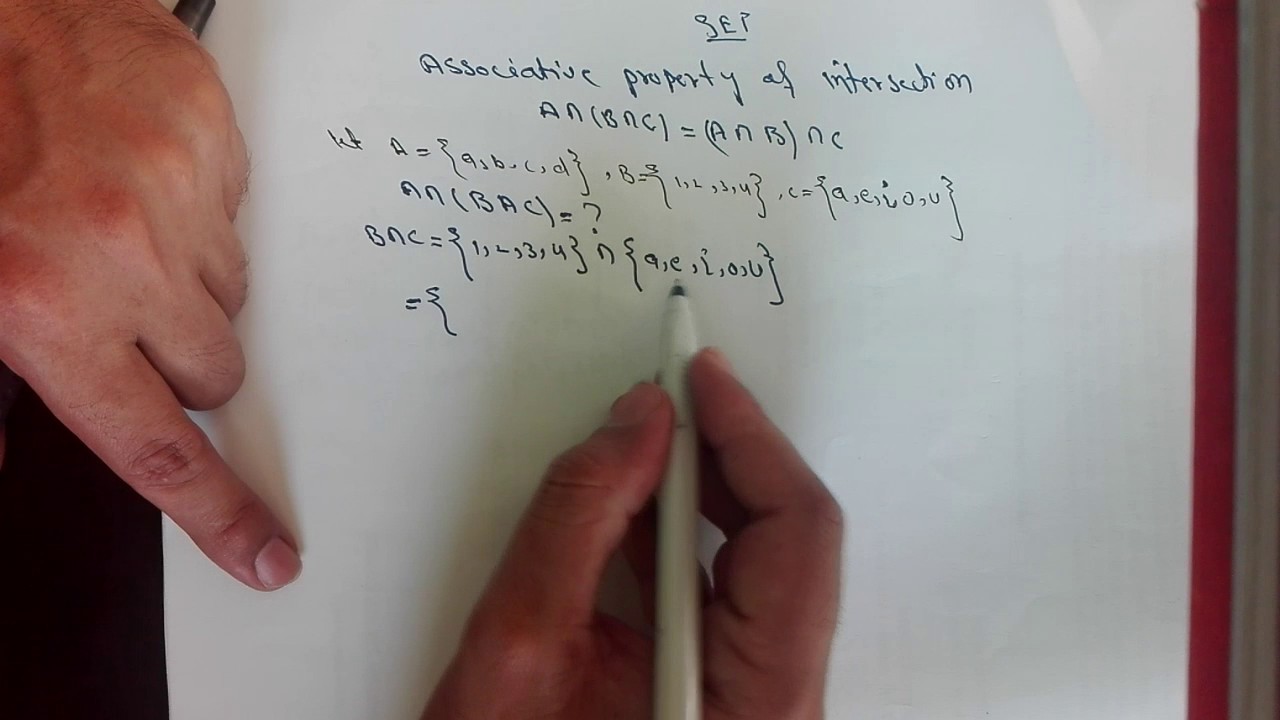 SET
Associative property of intersection
A∩(B∩C) = (A∩B)∩C
let A = {a,b,c,d}, B={1,2,3,4}, C={a,e,i,o,u}
A∩(B∩C) = ?
B∩C = {1,2,3,4} ∩ {a,e,i,o,u}
= {